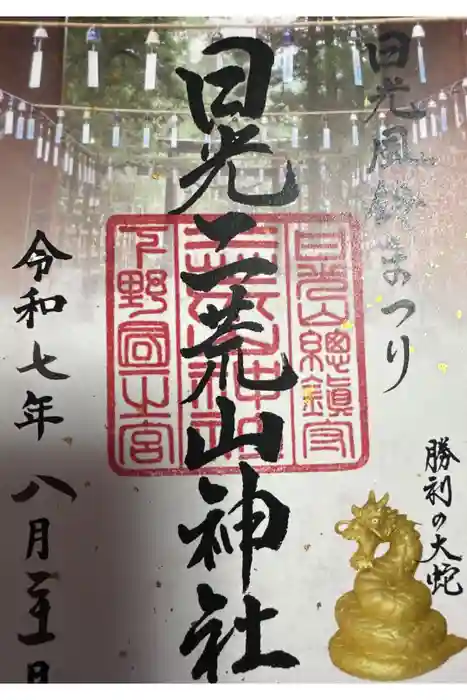 日光風鈴まつり
日光二荒山神社
日光山總鎮守
二荒山神社
下野國一之宮
勝利の大蛇
令和七年八月二十一日